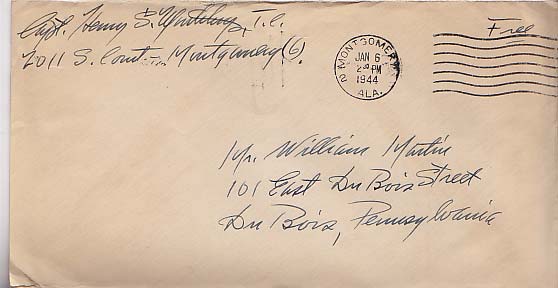 Capt. Henry S. T.C.
2011 S. Court Montgomery (6).
Free
MONTGOMERY 2
JAN 6
2 30 PM
1944
ALA.
Mr. William Martin
101 East Du Bois Street
Du Bois, Pennsylvania